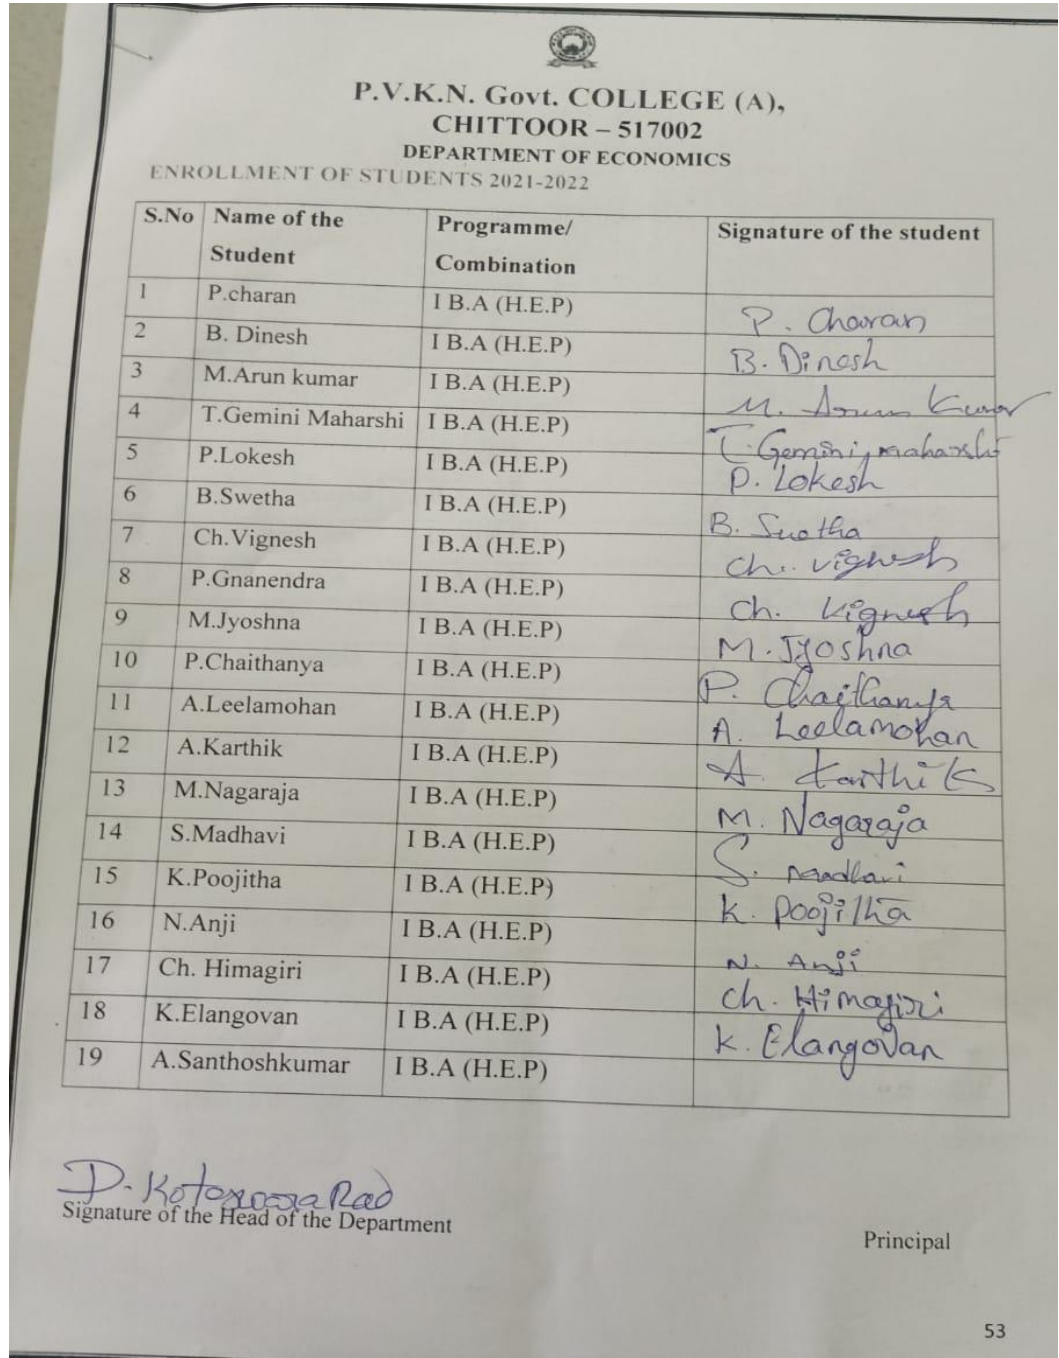 P.V.K.N. Govt. COLLEGE (A),
CHITTOOR – 517002
DEPARTMENT OF ECONOMICS
ENROLLMENT OF STUDENTS 2021-2022
S.No Name of the Student Programme/ Combination Signature of the student
1 P.charan I B.A (H.E.P) P. Charan
2 B. Dinesh I B.A (H.E.P) B. Dinesh
3 M.Arun kumar I B.A (H.E.P) M. Arun Kumar
4 T.Gemini Maharshi I B.A (H.E.P) T. Gemini maharshi
5 P.Lokesh I B.A (H.E.P) P. Lokesh
6 B.Swetha I B.A (H.E.P) B. Swetha
7 Ch.Vignesh I B.A (H.E.P) Ch. Vignesh
8 P.Gnanendra I B.A (H.E.P) Ch. Vignesh
9 M.Jyoshna I B.A (H.E.P) M. Jyoshna
10 P.Chaithanya I B.A (H.E.P) P. Chaithanya
11 A.Leelamohan I B.A (H.E.P) A. Leelamohan
12 A.Karthik I B.A (H.E.P) A. Karthik
13 M.Nagaraja I B.A (H.E.P) M. Nagaraja
14 S.Madhavi I B.A (H.E.P) S. Madhavi
15 K.Poojitha I B.A (H.E.P) K. Poojitha
16 N.Anji I B.A (H.E.P) N. Anji
17 Ch. Himagiri I B.A (H.E.P) Ch. Himagiri
18 K.Elangovan I B.A (H.E.P) K. Elangovan
19 A.Santhoshkumar I B.A (H.E.P)
D. Rao
Signature of the Head of the Department
Principal
53